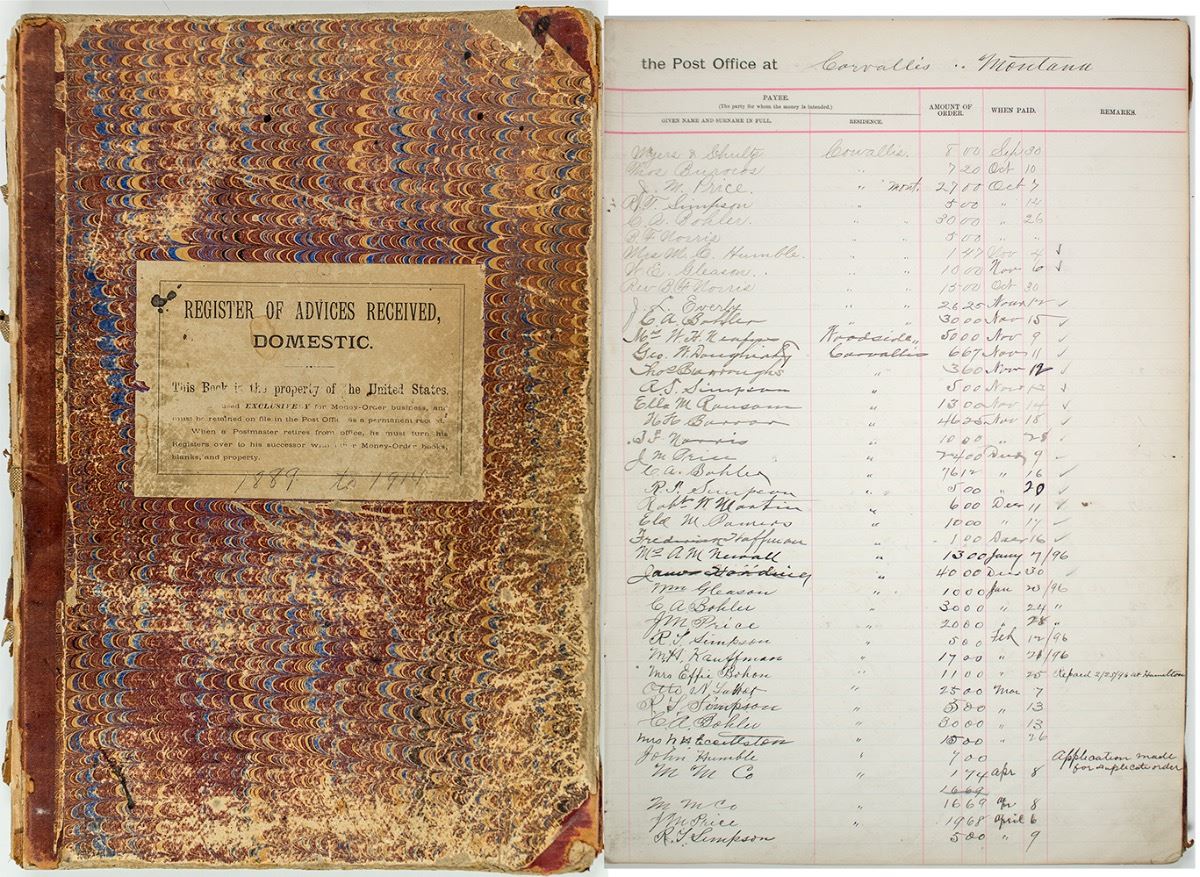 REGISTER OF ADVICES RECEIVED,
DOMESTIC.
This Book is the property of the United States,
used EXCLUSIVELY for Money-Order business, and
must be retained on file in the Post Office as a permanent record.
When a Postmaster retires from office, he must turn his
Registers over to his successor with other Money-Order books,
blanks, and property.
1889 to 1914
the Post Office at Corvallis .. Montana
PAYEE.
(The party for whom the money is intended.)
GIVEN NAME AND SURNAME IN FULL.
RESIDENCE.
AMOUNT OF
ORDER.
WHEN PAID.
REMARKS.
Myers & Shultz Corvallis. 8 00 Sep 30
Burrows " 7 20 Oct 10
J. M. Price " Mont. 27 00 Oct 7
Simpson " " 5 00 " 14
C. A. Bohler. " " 30 00 " 26
B F Norris " " 5 00 " "
Mrs M. E. Humble. " " 1 47 Nov 4 ✓
W. E. Gleason. " " 10 00 Nov 6 ✓
Rev B F Norris " " 15 00 Oct 30
J. L. Everly " " 26 25 Nov 12 ✓
C. A. Bohler " " 30 00 Nov 15 ✓
W H Woodside " 50 00 Nov 9 ✓
Geo. W. Dougherty Corvallis 6 67 Nov 11 ✓
Thos Burroughs " 3 60 Nov 12 ✓
Simpson " 5 00 Nov ✓
Ella M Ransom " 13 00 Nov 14 ✓
" 46 25 Nov 18 ✓
Norris " 10 00 " 28 ✓
J M Price " 24 00 Dec 9
C. A. Bohler " 76 12 " 16 ✓
Simpson " " 5 00 " 20 ✓
Robt W Martin " 6 00 Dec 11 ✓
" 10 00 " 17 ✓
Frederick Hoffman " 1 00 Dec 16 ✓
A M Newall " 13 00 Jany 7 /96
James Harding " 40 00 Dec 30 ✓
Wm Gleason " " 10 00 Jan 23 /96
C A Bohler " 30 00 " 24 "
J M Price " 20 00 " 28 "
R. S. Simpson " 5 00 Feb 12 /96
W H. Kauffman " 17 00 " 21 /96
Mrs Effie Bohon " 11 00 " 25 Repaid 2/25/96 at Hamilton
Otto N " 25 00 Mar 7
R S Simpson " 5 00 " 13
C A. Bohler " 30 00 " 13
Mrs W H Eccleston " 15 00 " 26
John Humble " 7 00 Application made
for duplicate order
M M Co " 1 74 Apr 8
16 69
M M Co " 16 69 Apr 8
J M Price " 19 68 April 6
R. S. Simpson " 5 00 " 9